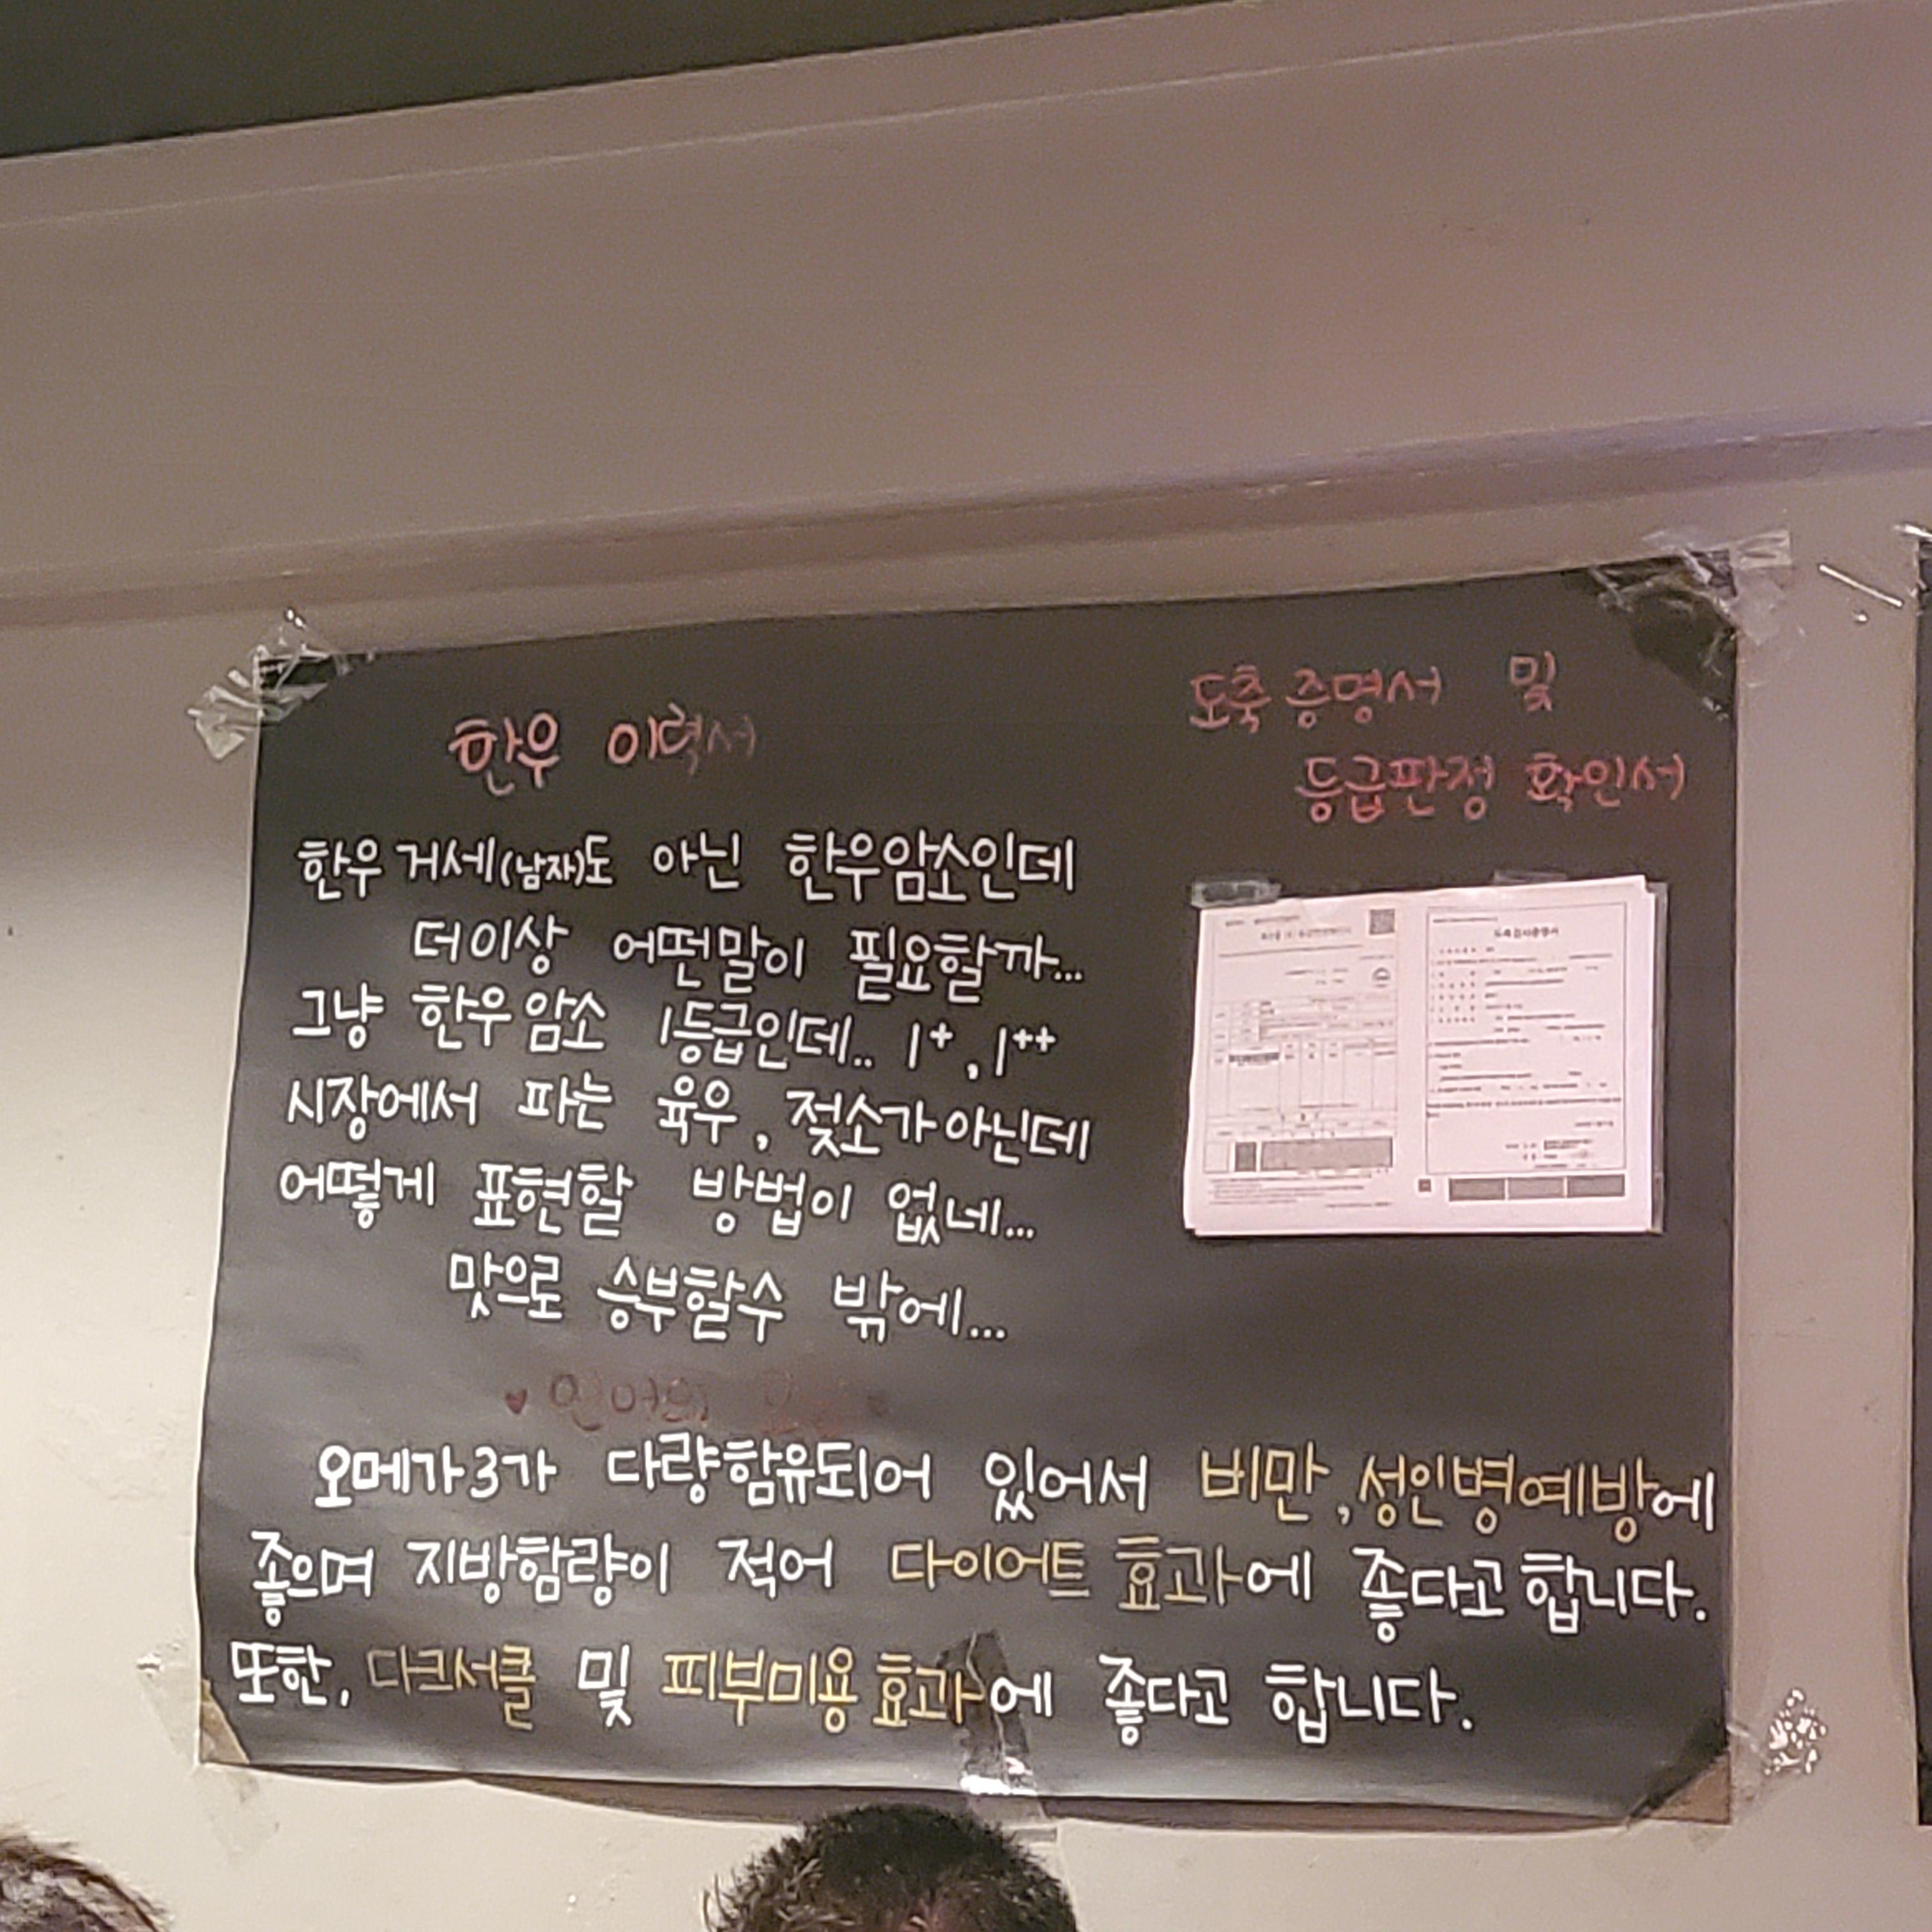 한우 이력서
한우거세(남자)도 아닌 한우암소인데
더이상 어떤말이 필요할까...
그냥 한우암소 1등급인데.. 1+, 1++
시장에서 파는 육우, 젖소가아닌데
어떻게 표현할 방법이 없네...
맛으로 승부할수 밖에...
도축증명서 및
등급판정 확인서
도축검사증명서
♥ 연어의
오메가3가 다량함유되어 있어서 비만,성인병예방에
좋으며 지방함량이 적어 다이어트 효과에 좋다고합니다.
또한, 다크서클 및 피부미용효과에 좋다고 합니다.